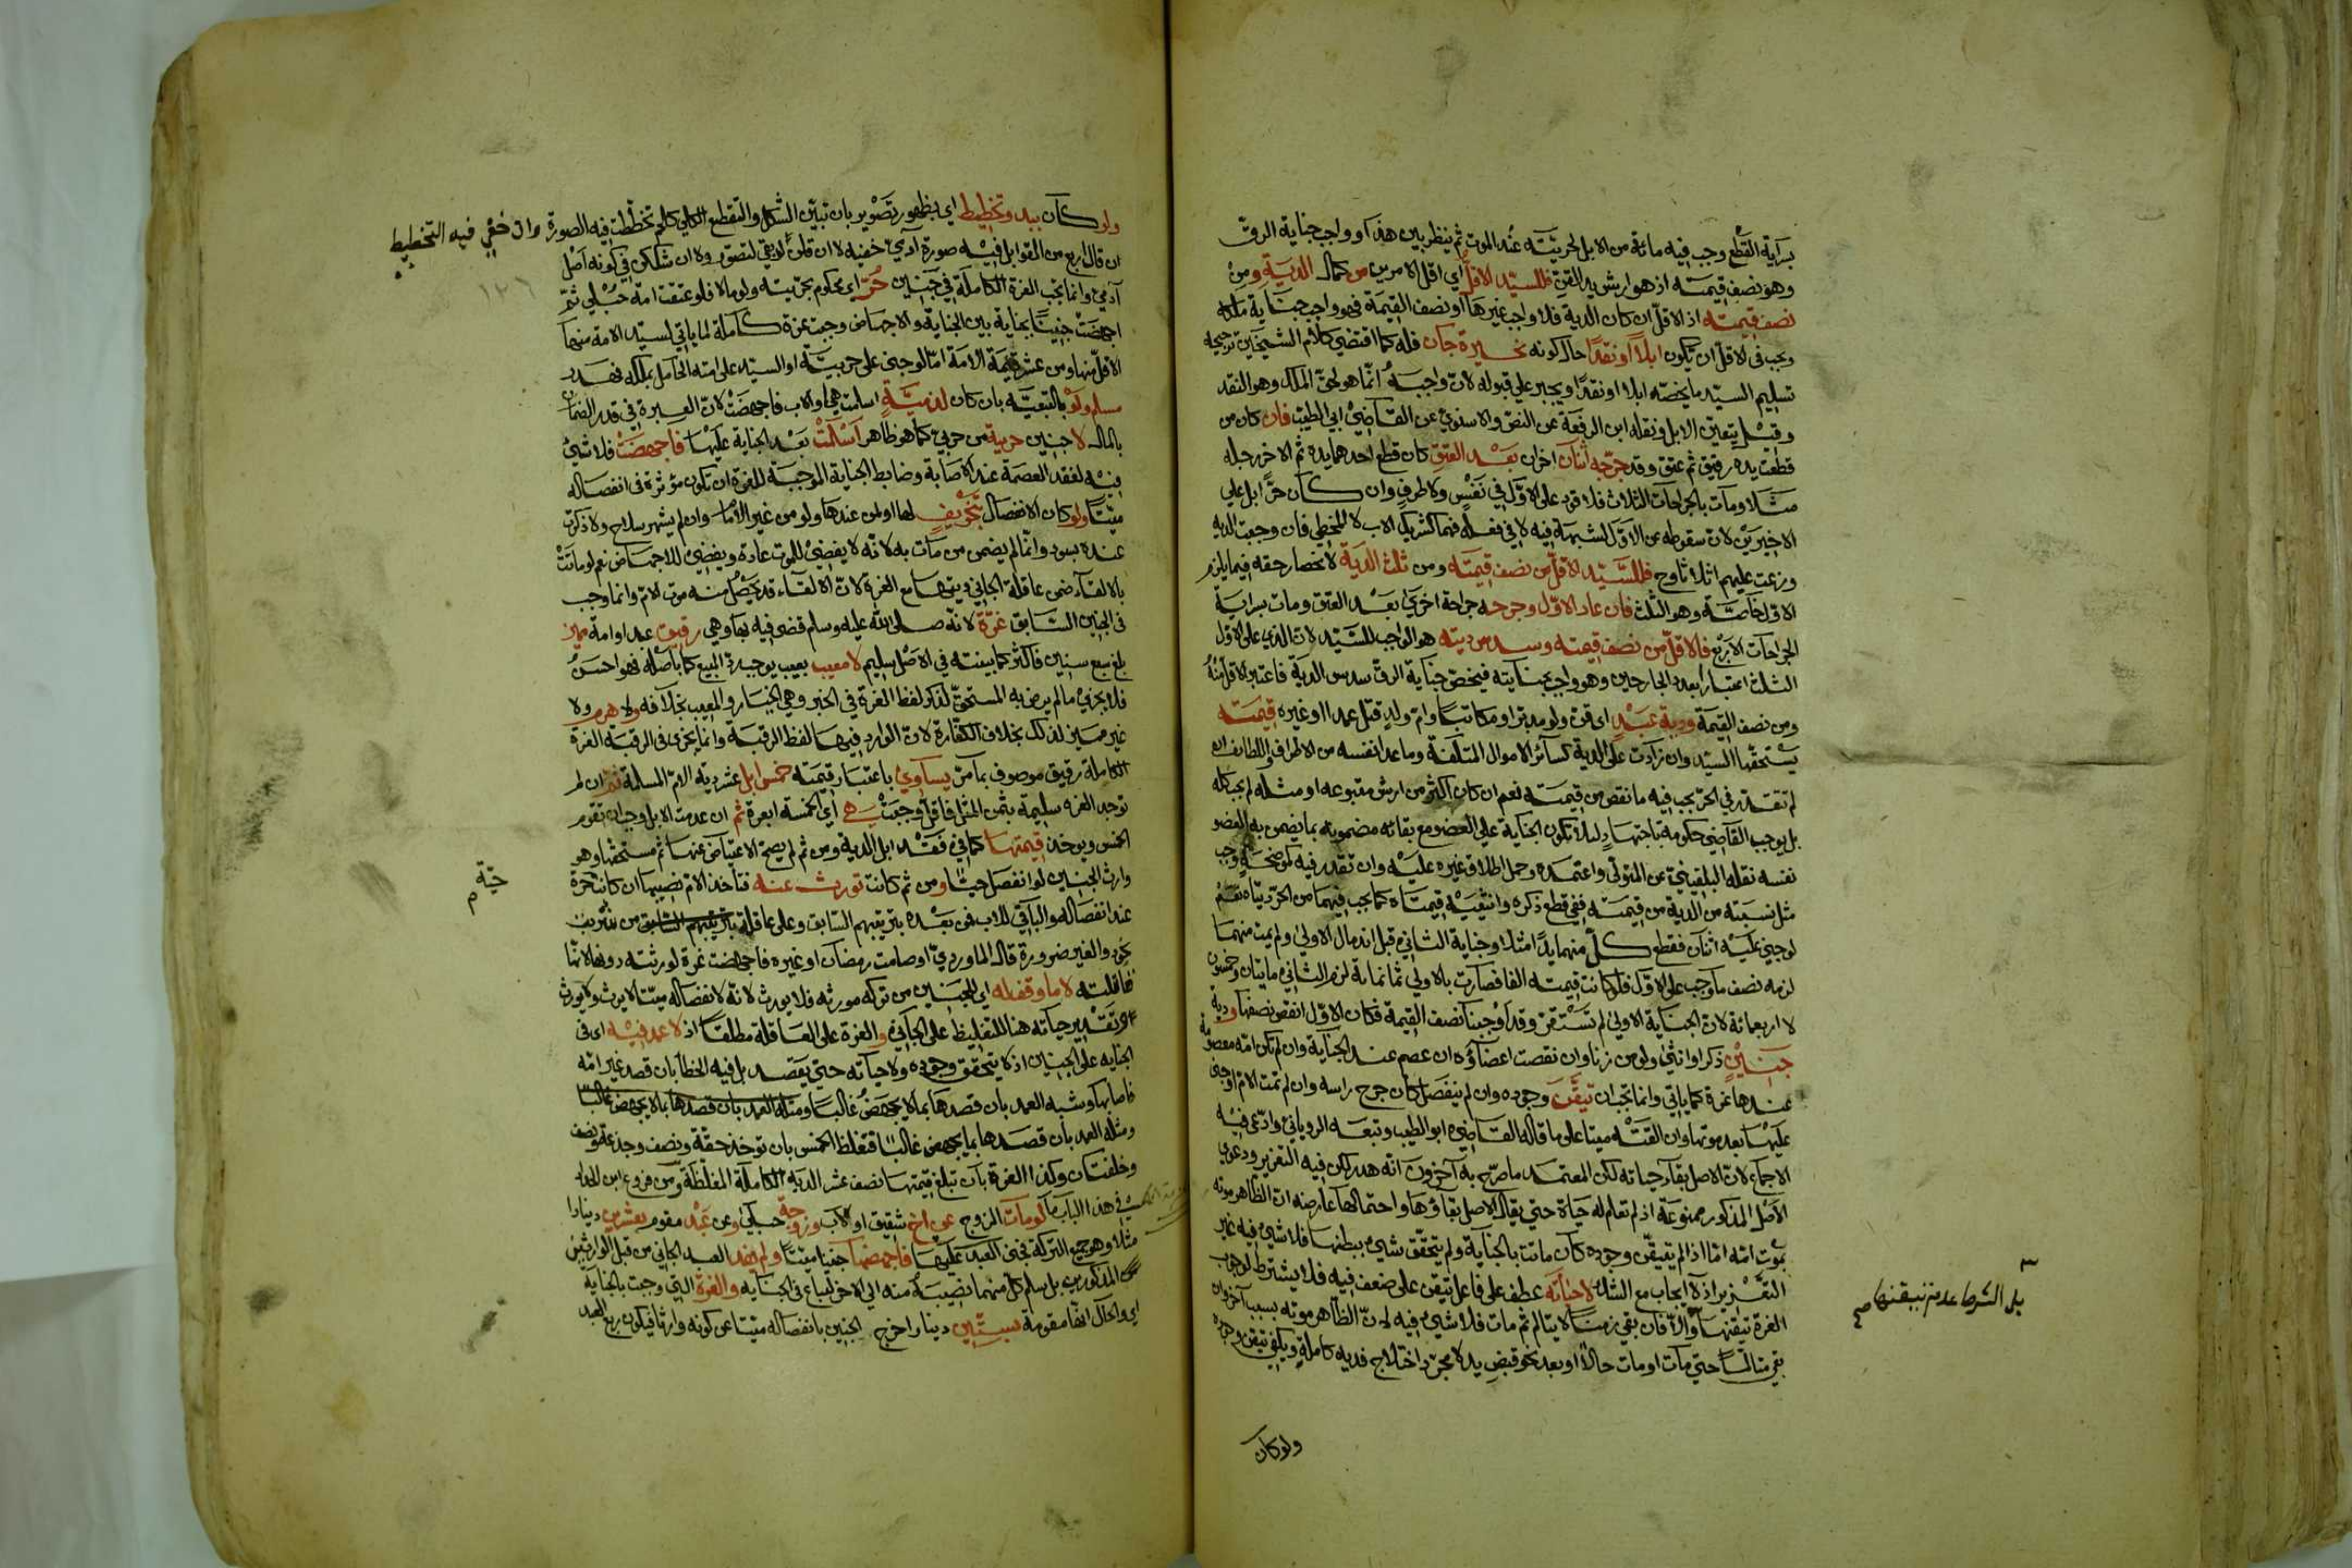 بسراية القطع وجب فيه مائة من الابل لحريته عند الموت ثم ينظر بين هذا وواجب جناية الرق
وهو نصف قيمته اذ هو ارش يد القن فللسيد الاقل اي اقل الامرين من كمال الدية ومن
نصف قيمته اذ الاقل ان كان الدية فلا واجب غيرها او نصف القيمة فهو واجب جناية ملكه
ويجب في الاقل ان يكون ابلا او نقدا حال كونه بخيرة جان فله كما اقتضى كلام الشيخين ترجيحه
تسليم السيد ما يخصه ابلا او نقدا ويجبر على قبوله لان واجبه انما هو لحق الملك وهو النقد
وقيل يتعين الابل ونقله ابن الرفعة عن النص والاسنوي عن القاضي ابي الطيب فان كان من
قطعت يده رقيق ثم عتق وقد جرحه اثنان اخران بعد العتق كان قطع احدهما يده ثم الاخر رجله
مثلا ومات بالجراحات الثلاث فلا قود على الاول في نفس ولا طرف وان كان حرا بل على
الاخيرين لان سقوطه عن الاول لشبهة فيه لا في فعله فهما كشريك الاب لا المخطي فان وجبت الدية
وزعت عليهم اثلاثا وح فللسيد الاقل من نصف قيمته ومن ثلث الدية لانحصار حقه فيما يلزم
الاول خاصة وهو الثلث فان عاد الاول وجرحه جراحة اخرى بعد العتق ومات بسراية
الجراحات الاربع فالاقل من نصف قيمته وسدس ديته هو الواجب للسيد لان الذي على الاول
الثلث اعتبارا بعدد الجارحين وهو واجب جنايته فيخص جناية الرق سدس الدية فاعتبر الاقل منه
ومن نصف القيمة ودية عبد اي قن ولو مدبرا او مكاتبا وام ولد قتل عمدا او غيره قيمته
يستحقها السيد وان زادت على الدية كسائر الاموال المتلفة وما عدا نفسه من الاطراف واللطايف ان
لم تقدر في الحر يجب فيه ما نقص من قيمته نعم ان كان اكثر من ارش متبوعه او مثله لم يجب كله
بل يوجب القاضي حكومة باجتهاد لئلا تكون الجناية على العضو مع بقائه مضمونة بما يضمن به العضو
نفسه نقله البلقيني عن المتولي واعتمده وحمل اطلاق غيره عليه وان تقدر فيه كموضحة وجب
مثل نسبته من الدية من قيمته ففي قطع ذكره وانثييه قيمتاه كما يجب فيهما من الحر ديتاه نعم
لو جنى عليه اثنان فقطع كل منهما يدا مثلا وجناية الثاني قبل اندمال الاولى ولم يمت منهما
لزمه نصف ما وجب على الاول فلو كانت قيمته الفا فصارت بالاولى ثمانمائة لزم الثاني مايتان وخمسون
لا اربعمائة لان الجناية الاولى لم تستقر وقد اوجبنا نصف القيمة فكان الاول انقص نصفها ودية
جنين ذكرا او انثى ولو من زنا وان نقصت اعضاؤه ان عصم عند الجناية وان لم تكن امه معصومة
عندها غرة كما ياتي وانما تجب ان تيقن وجوده وان لم ينفصل كان خرج راسه وان لم تمت الام او جنى
عليها بعد موتها وان القته ميتا على ما قاله القاضي ابو الطيب وتبعه الروياني وادعى فيه
الاجماع لان الاصل بقاء حياته لكن المعتمد ما صرح به آخرون انه هدر لكن فيه التعزير ودعوى
الاصل المذكور ممنوعة اذ لم تعلم له حياة حتى يقال الاصل بقاؤها واحتمالها عارضه ان الظاهر موته
بموت امه اما اذا لم يتيقن وجوده كان ماتت بالجناية ولم يتحقق شيء ببطنها فلا شيء فيه غير
التعزير اذ لا ايجاب مع الشك لا حياته عطف على فاعل تيقن على ضعف فيه فلا يشترط لوجوب
الغرة تيقنها والا فان بقي زمنا لا يتالم ثم مات فلا شيء فيه لان الظاهر موته بسبب آخر وان
بقي متالما حتى مات او مات حالا او بعد نحو قبض يد لا مجرد اختلاج فديه كاملة ويكفي تيقن وجوده
بل الشرط عدم تيقنها صح
ولو كان
ولو كان ببدو تخطيط اي بظهور تصوير بان تبين الشكل والتقطيع الكلي كلحم تخطت فيه الصورة وان خفي فيه التخطيط
ان قال اربع من القوابل فيه صورة آدمي خفية لا ان قلن لو بقي لتصور ولا ان شككن في كونه اصل
آدمي وانما تجب الغرة الكاملة في جنين حر اي محكوم بحريته ولو مآلا فلو عتقت امة حبلى ثم
اجهضت جنينا بجناية بين الجناية والاجهاض وجبت غرة كاملة لما ياتي لسيد الامة منها
الاقل منها ومن عشر قيمة الامة اما لو جنى على حربية او السيد على امته الحامل بملكه فهدر
مسلم ولو بالتبعية بان كان لذمية اسلمت هي او الاب فاجهضت لان العبرة في قدر الضمان
بالمال لا جنين حربية من حربي كما هو ظاهر اسلمت بعد الجناية عليها فاجهضت فلا شيء
فيه لفقد العصمة عند الاصابة وضابط الجناية الموجبة للغرة ان تكون مؤثرة في انفصاله
ميتا ولو كان الانفصال بتخويف لها او لمن عندها ولو من غير الامام وان لم يشهر سلاح ولا ذكرت
عنده بسوء وانما لم يضمن من مات به لانه لا يفضي للموت عادة ويفضي للاجهاض نعم لو ماتت
بالالقاء ضمن عاقلة الجاني ديتها مع الغرة لان الالقاء قد يحصل منه موت الام وانما وجب
في الجنين السابق غرة لانه صلى الله عليه وسلم قضى فيه بها وهي رقيق عبد او امة مميز
بلغ سبع سنين فاكثر كما بينته في الاصل سليم لا معيب بعيب يوجب رد المبيع كما باصله فهو احسن
فلا يجزي ما لم يرض به المستحق لذكر لفظ الغرة في الخبر وهي الخيار والمعيب بخلافه ولا هرم ولا
غير مميز لذلك بخلاف الكفارة لان الوارد فيها لفظ الرقبة وانما يجزى في الرقبة الغرة
الكاملة رقيق موصوف بما مر يساوي باعتبار قيمته خمس ابل عشر دية الام المسلمة ثم ان لم
توجد الغرة سليمة بثمن المثل فاقل وجبت هي اي الخمسة ابعرة ثم ان عدمت الابل وجب ان تقوم
الخمس ويوخذ قيمتها كما في فقد ابل الدية ومن ثم لم يصح الاعتياض عنها ثم مستحقها وهو
وارث الجنين لو انفصل حيا ومن ثم كانت تورث عنه فتاخذ الام نصيبها ان كانت حرة
عند انفصاله والباقي للاب فمن بعده بترتيبهم السابق وعلى عاقلة
ولو الغير ضرورة قال الماوردي او صامت رمضان او غيره فاجهضت غرة لورثته دونها لانها
قاتلته لا ما وقف له اي للجنين من تركة مورثه فلا يورث لانه لانفصاله ميتا لا يرث ولا يورث
تقدير حياته هنا للتغليظ على الجاني والغرة على العاقلة مطلقا اذ لا عمد فيه اي في
الجناية على الجنين اذ لا يتحقق وجوده ولا حياته حتى يقصد بل فيه الخطا بان قصد غير امه
فاصابها وشبه العمد بان قصدها بما لا يجهض غالبا ومثله العمد بان قصدها بما لا يجهض غالبا
ومثله العمد بان قصدها بما يجهض غالبا فتغلظ الخمس بان توخذ حقة ونصف وجذعة ونصف
وخلفتان وكذا الغرة بان تبلغ قيمتها نصف عشر الدية الكاملة المغلظة ومن فروع ابن الحداد
في هذا الباب ما لو مات الزوج عن اخ شقيق او لاب وزوجة حبلى وعن عبد مقوم بعشرين دينارا
مثلا وهو جميع التركة فجنى العبد عليها فاجهضها جنينا ميتا ولم يفد العبد الجاني من قبل الوارثين
المذكورين بل سلم كل منهما نصيبه منه الى الاخر ليباع في الجناية والغرة التي وجبت بالجناية
اي والحال انها مقومة بستين دينارا خرج الجنين بانفصاله ميتا عن كونه وارثا فيكون ربع العبد
١٢٦